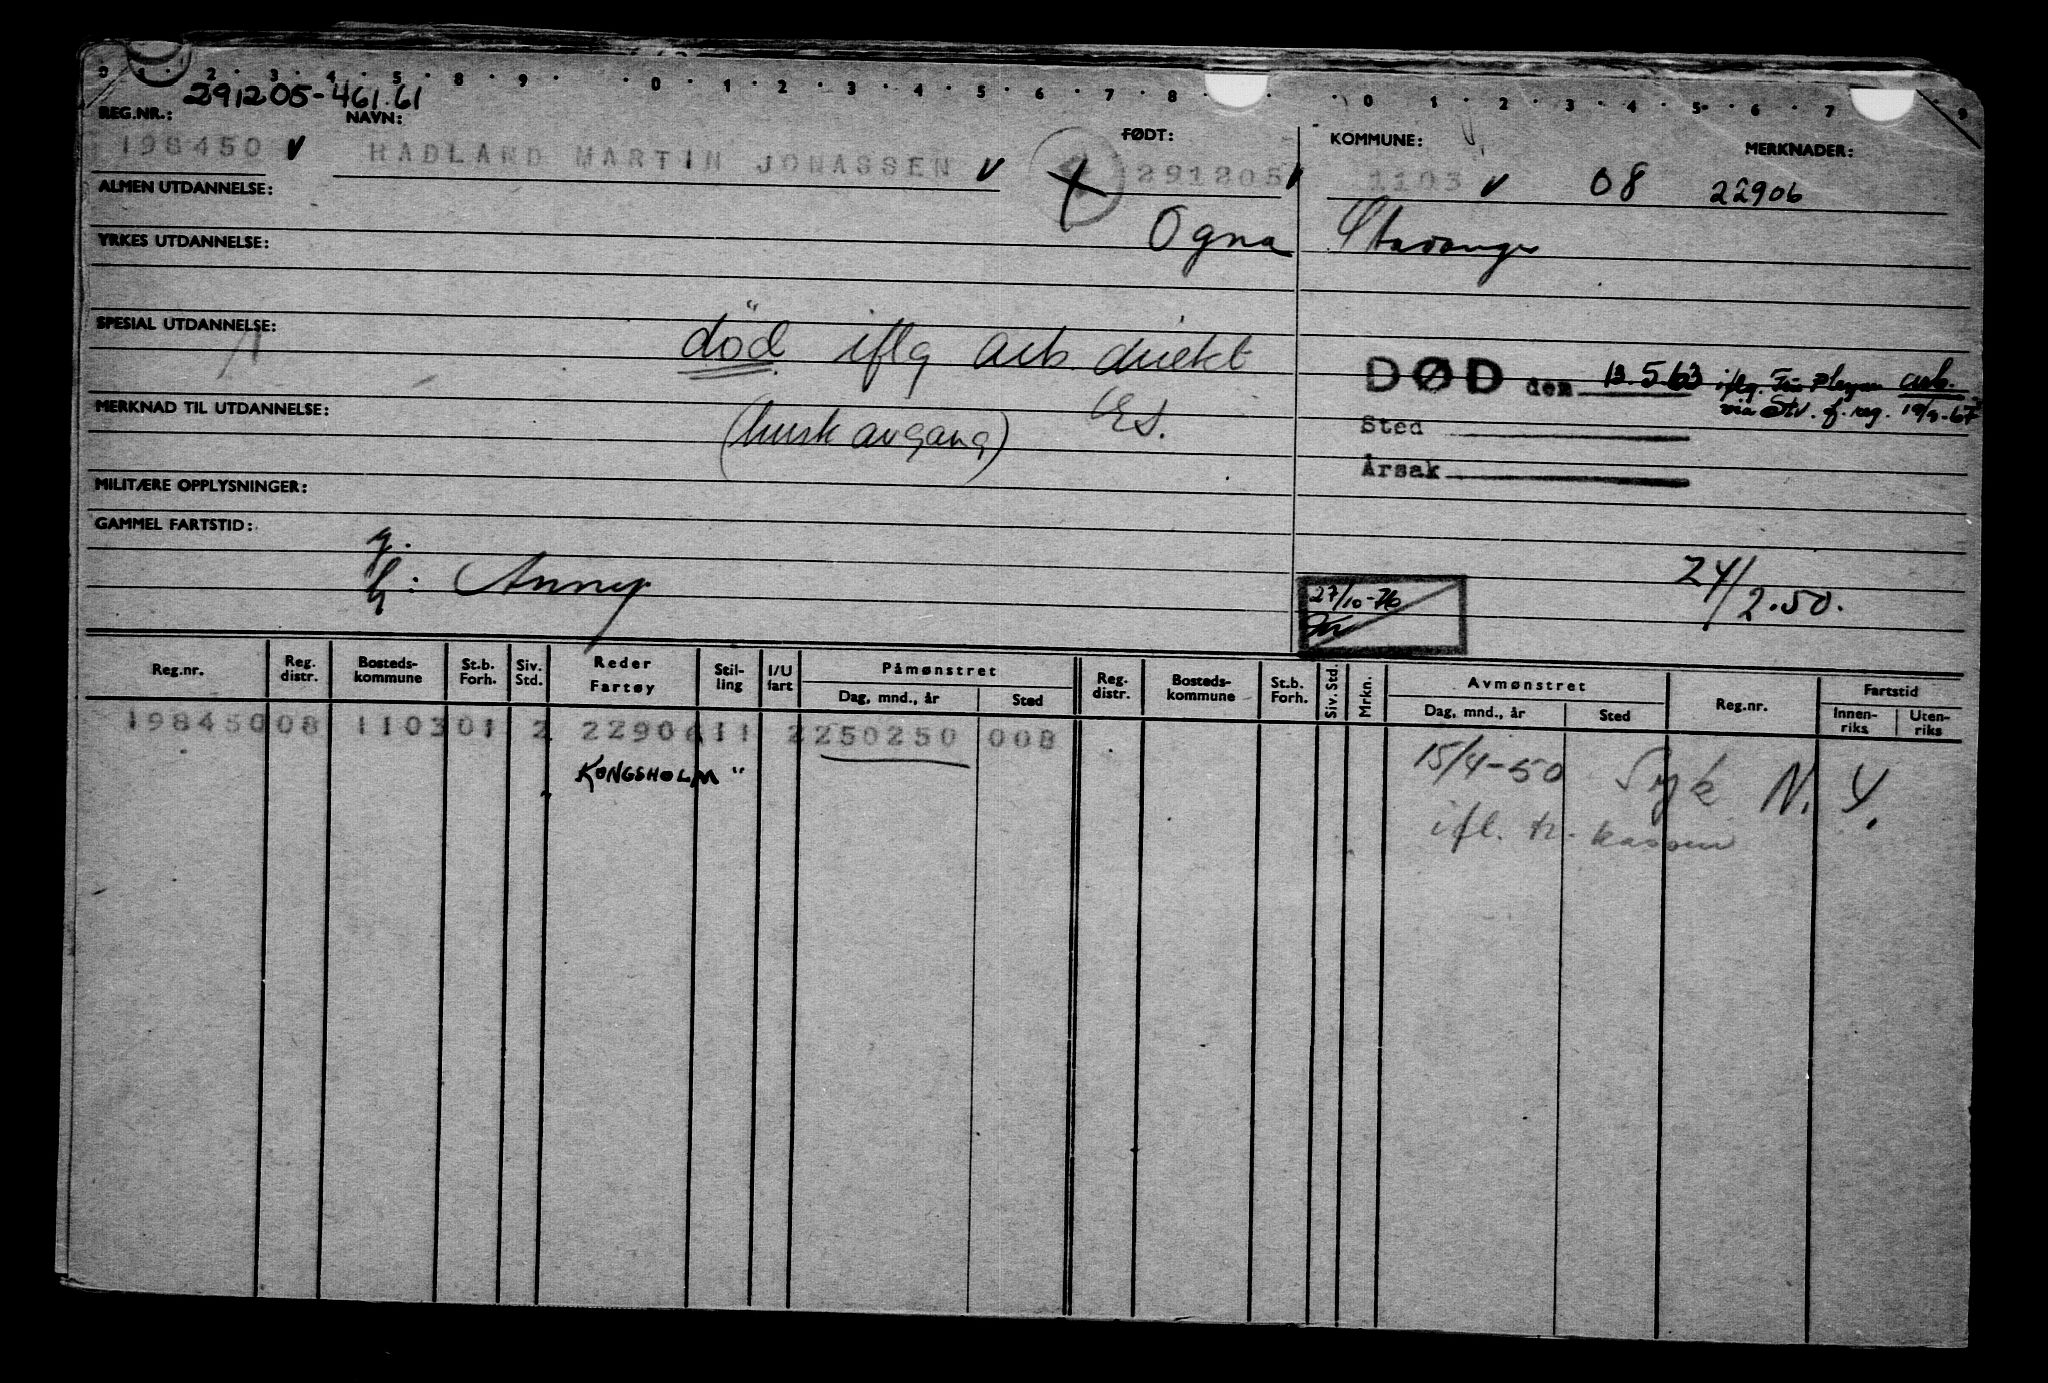 0 1 2 3 4 5 8 9 0 1 2 3 4 5 6 7 8 0 1 2 3 4 5 6 7 9
291205-461.61
REG.NR.: NAVN: FØDT: KOMMUNE: MERKNADER:
198450 v HADLAND MARTIN JONASSEN v 291205 v 1103 v 08 22906
ALMEN UTDANNELSE:
Ogna Stavanger
YRKES UTDANNELSE:
SPESIAL UTDANNELSE:
død iflg arb. direkt
DØD den 12.5.63 iflg. arb.
via 19/9-67
MERKNAD TIL UTDANNELSE:
(husk avgang) ES.
Sted
Årsak
MILITÆRE OPPLYSNINGER:
GAMMEL FARTSTID:
g.
h: Anny
27/10-76
24/2.50.
Reg.nr. Reg. distr. Bosteds-kommune St.b. Forh. Siv. Std. Reder Fartøy Stil-ling I/U fart Påmønstret Dag, mnd., år Sted Reg. distr. Bosteds-kommune St.b. Forh. Siv. Std. Mrkn. Avmønstret Dag, mnd., år Sted Reg.nr. Fartstid Innen-riks Uten-riks
198450 08 1103 01 2 22906 11 2 250250 008
KONGSHOLM "
15/4-50 Syk N.Y.
ifl. tr. kassen